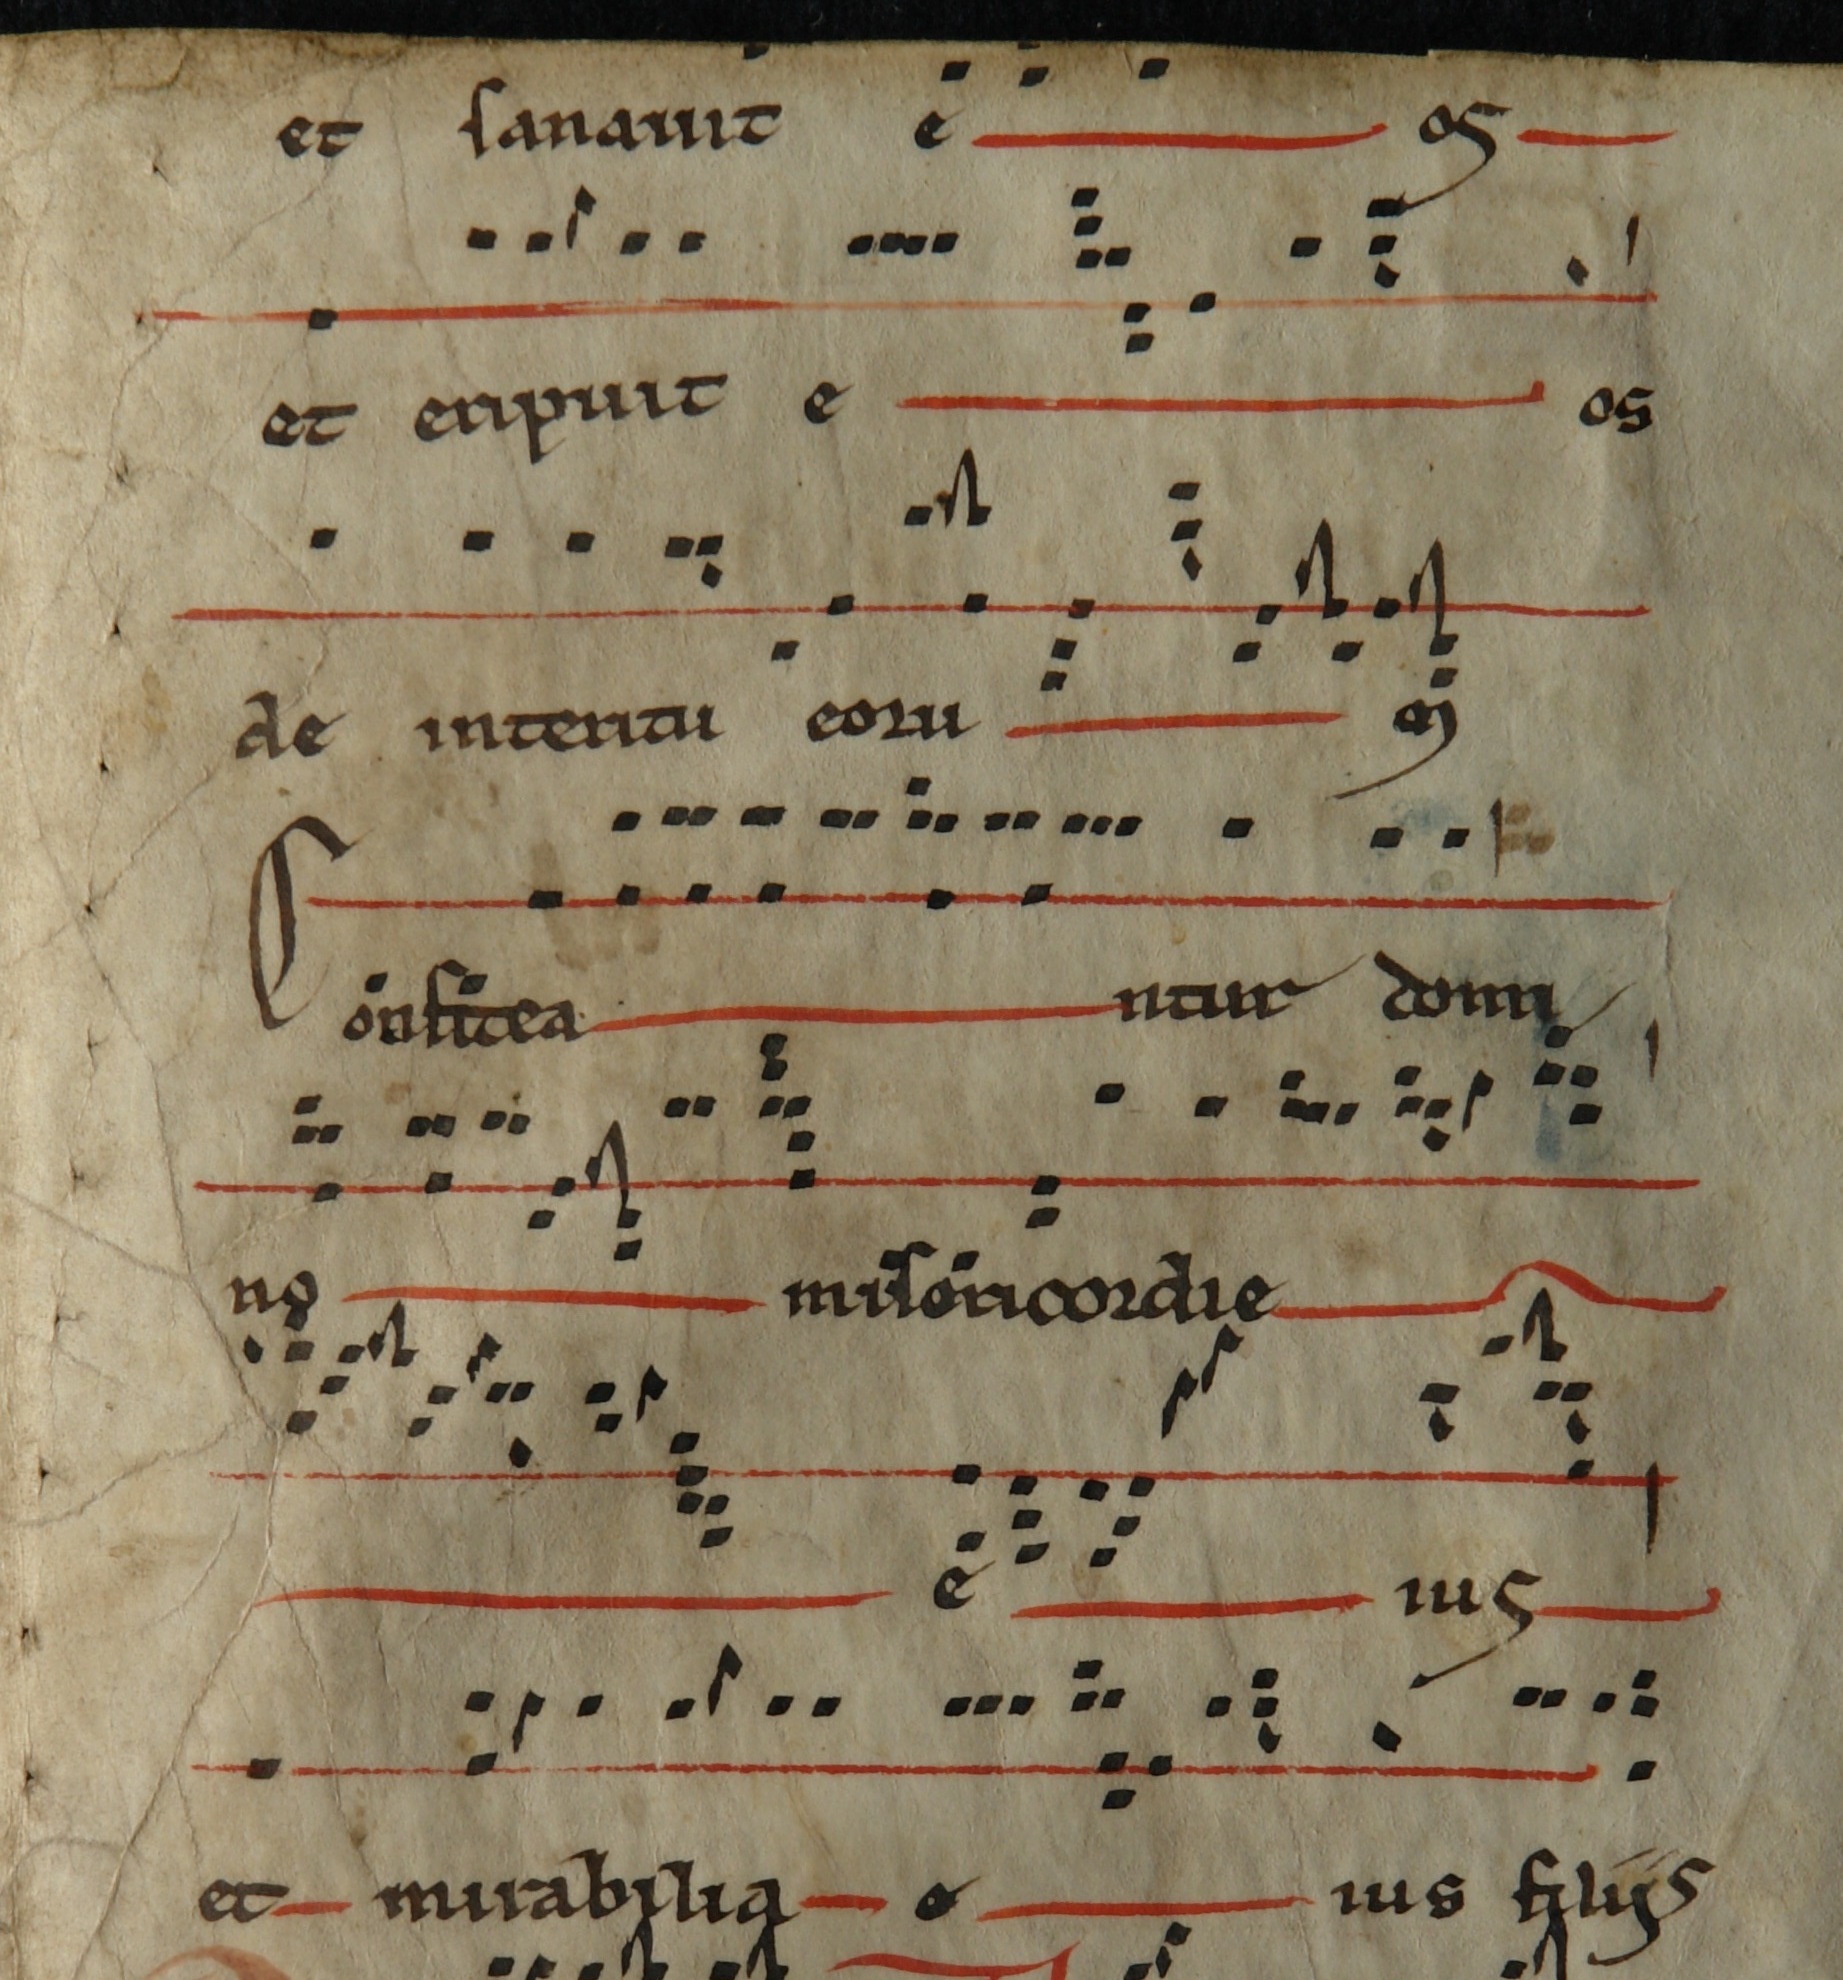 et sanauit e os
et eripuit e os
de interitu eoru m
Confitea ntur domi
no misericordie
e ius
et mirabilia e ius filijs